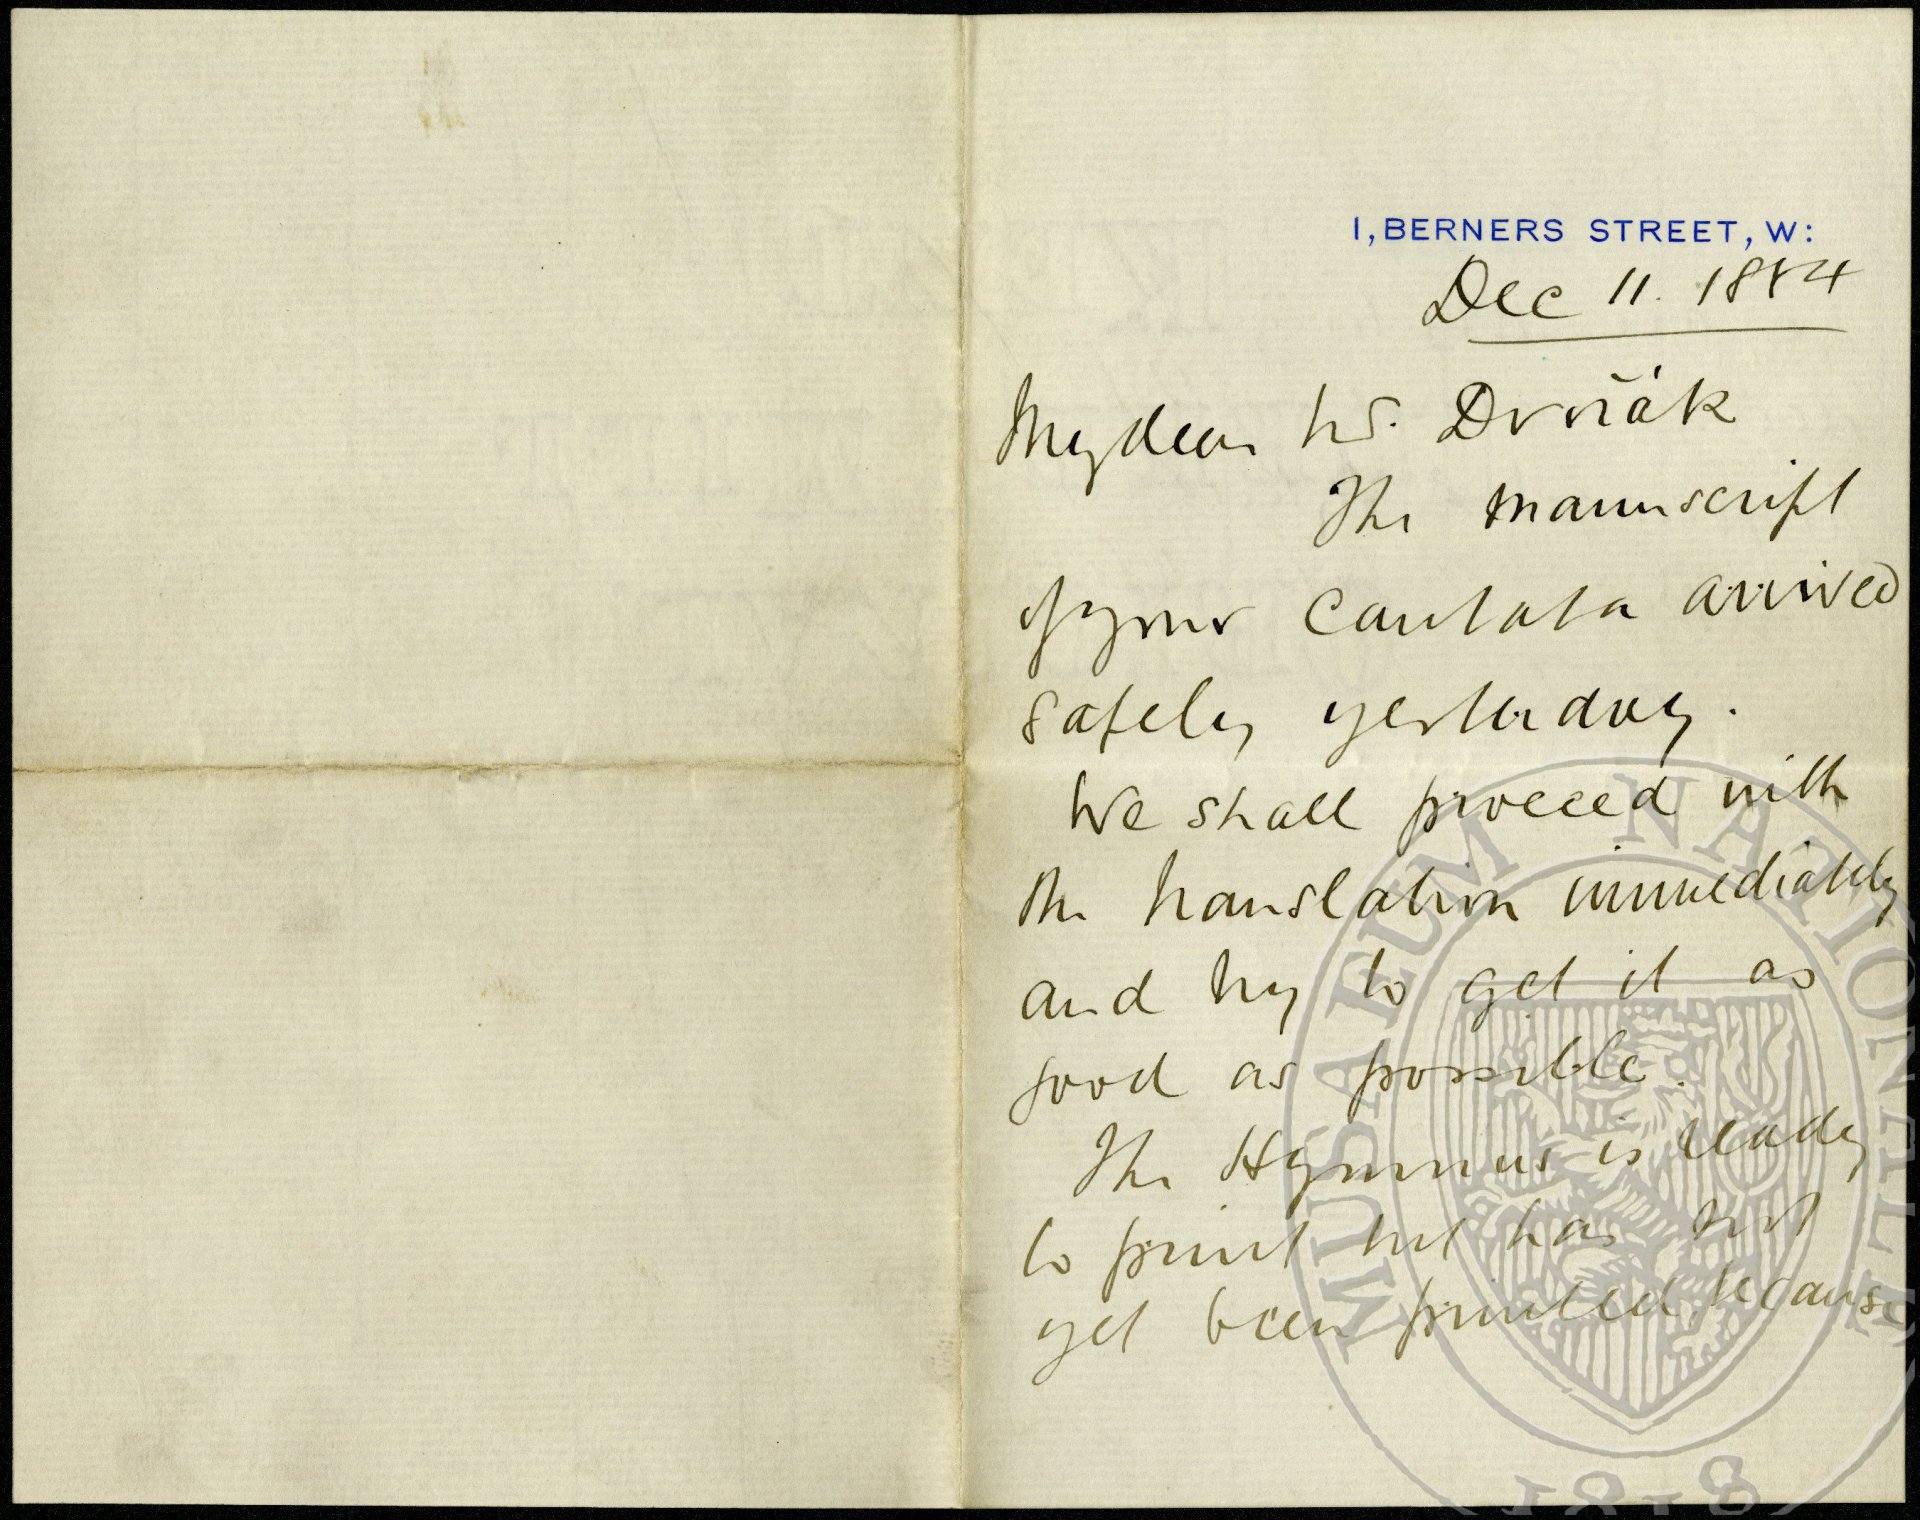 1, BERNERS STREET, W:
Dec 11. 1884
My dear Mr. Dvořák
The manuscript
of your Cantata arrived
safely yesterday.
We shall proceed with
the translation immediately
and try to get it as
good as possible.
The Hymnus is ready
to print but has not
yet been printed because
MUSAEUM NATIONALE
1818